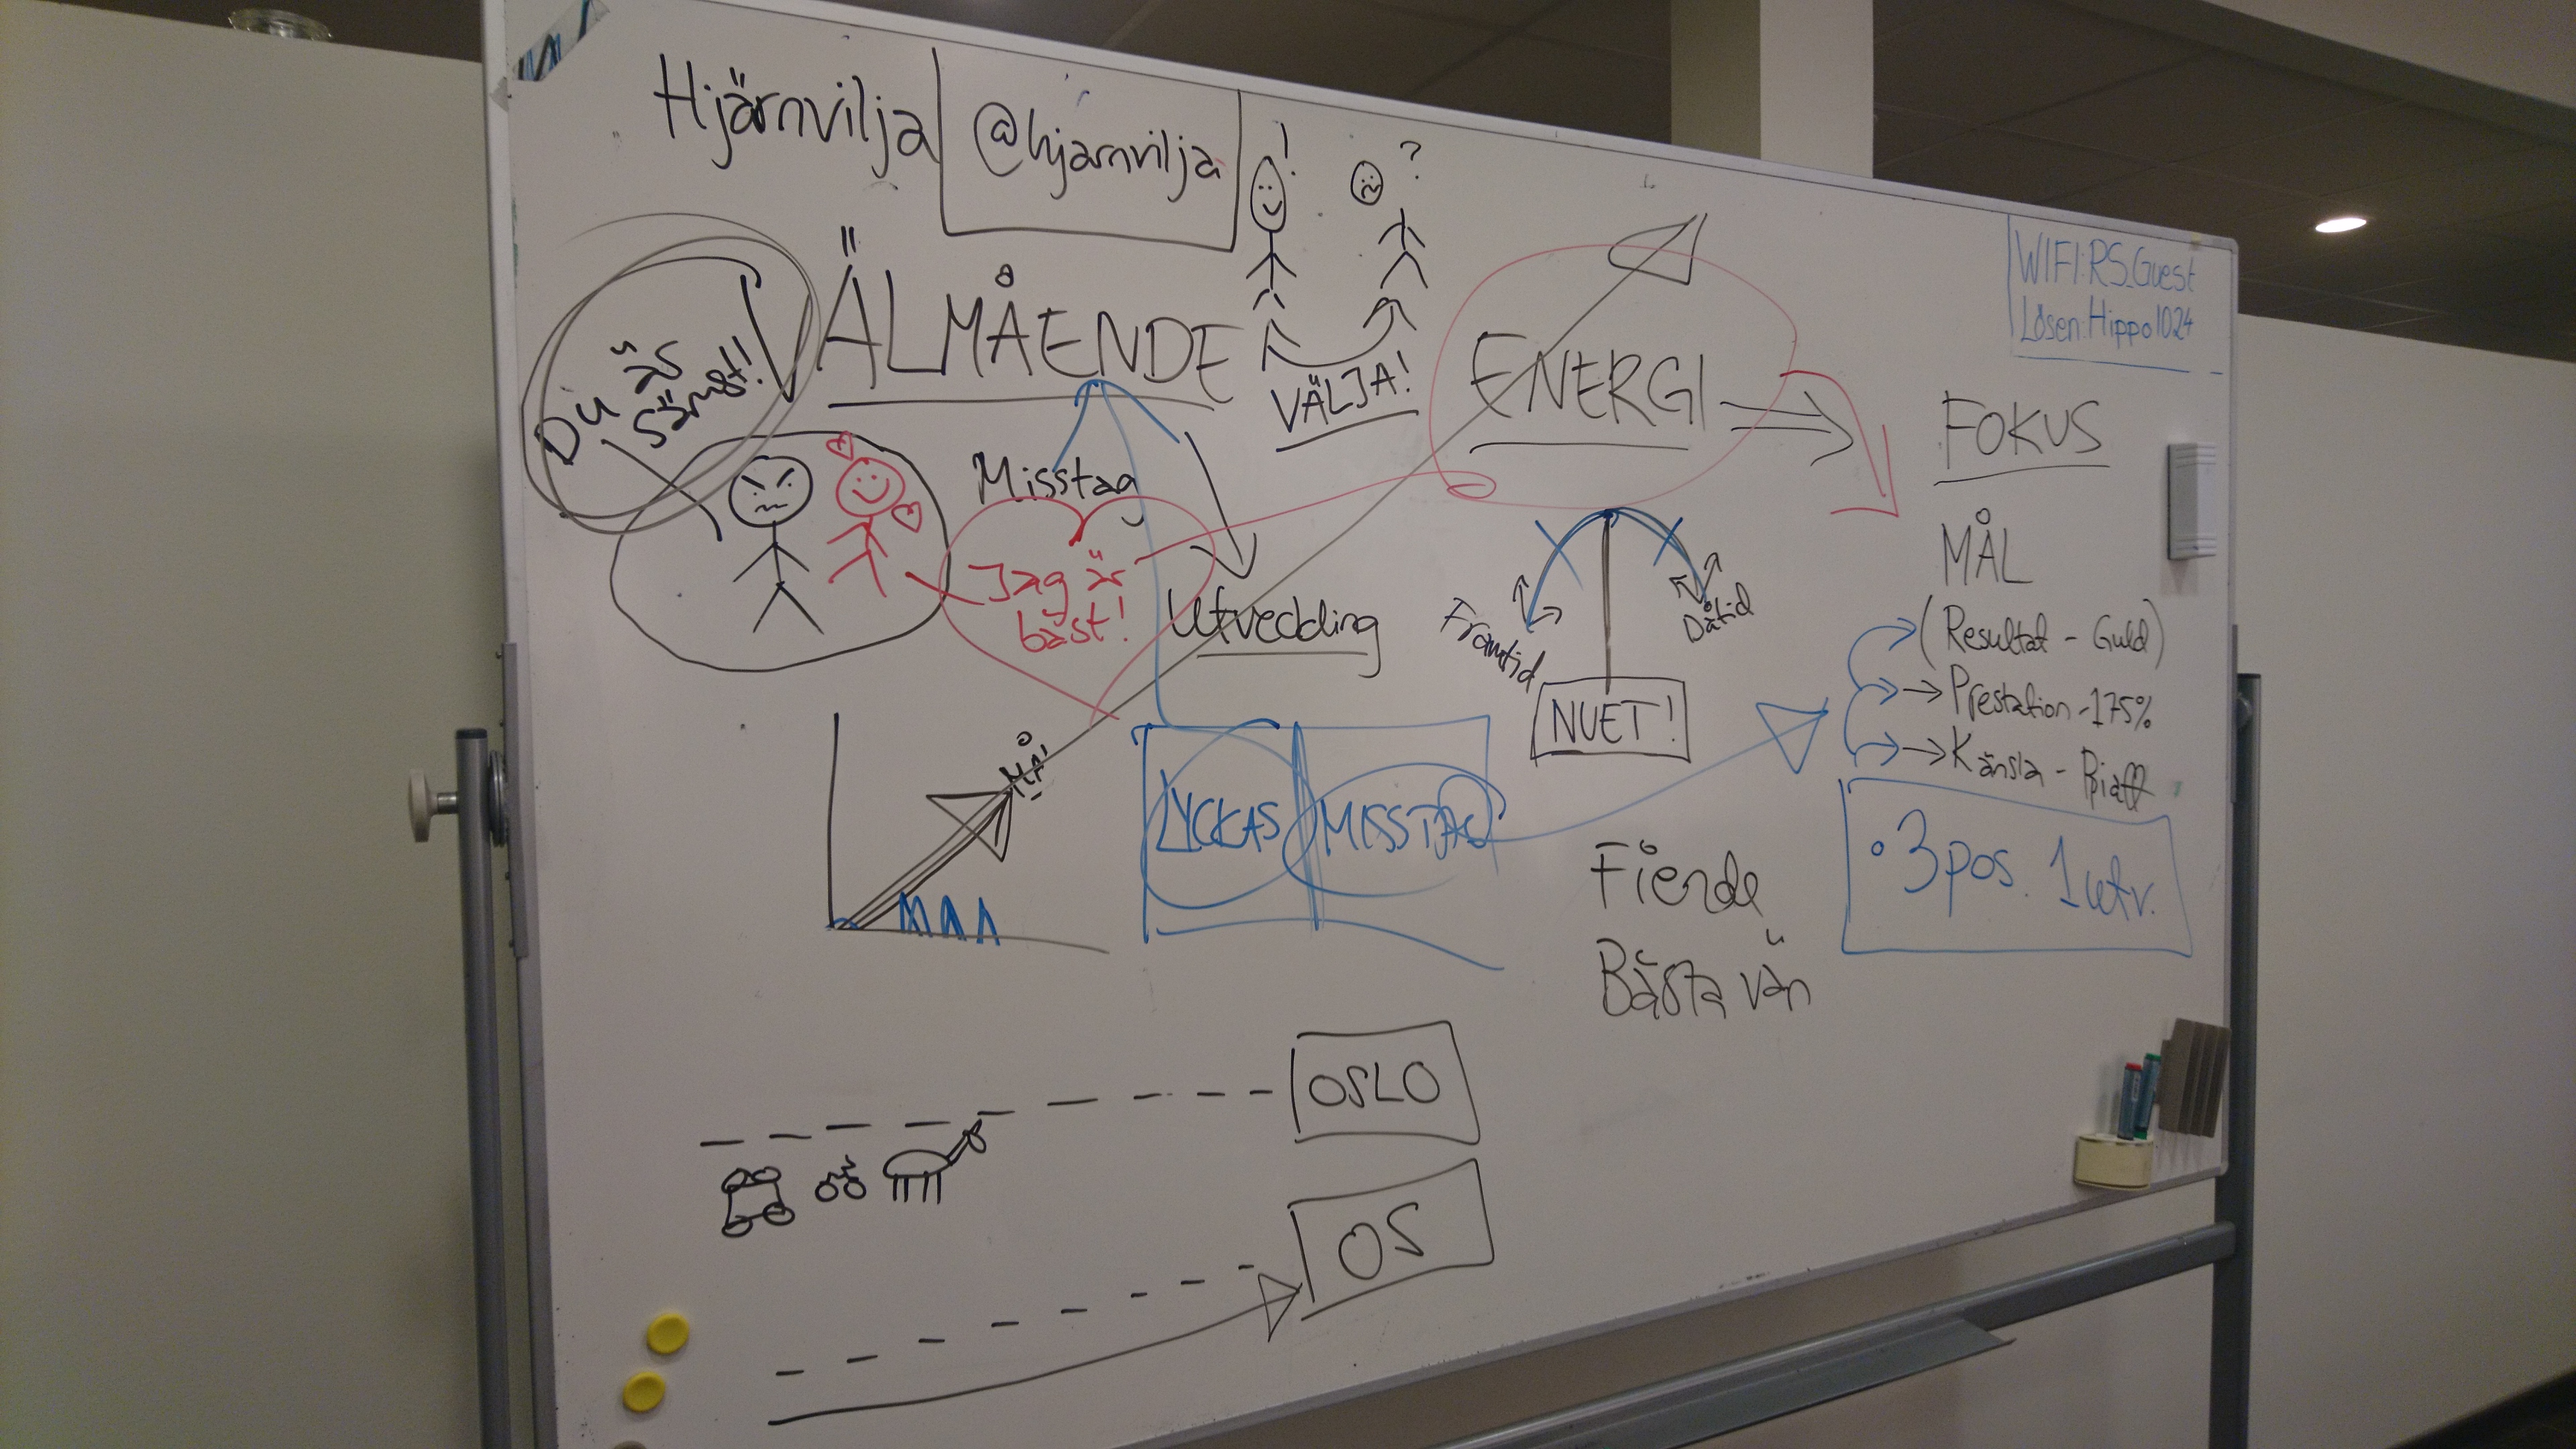 Hjärnvilja
@hjarnvilja
!
?
WIFI:RS_Guest
Lösen:Hippo1024
Du är
sämst!
VÄLMÅENDE
VÄLJA!
ENERGI
FOKUS
Misstag
Jag är
bäst!
Utveckling
Framtid
Dåtid
NUET!
MÅL
(Resultat - Guld)
Prestation - 175%
Känsla -
MÅL
LYCKAS
MISSTAG
• 3 pos. 1 utv.
Fiende
Bästa vän
OSLO
OS